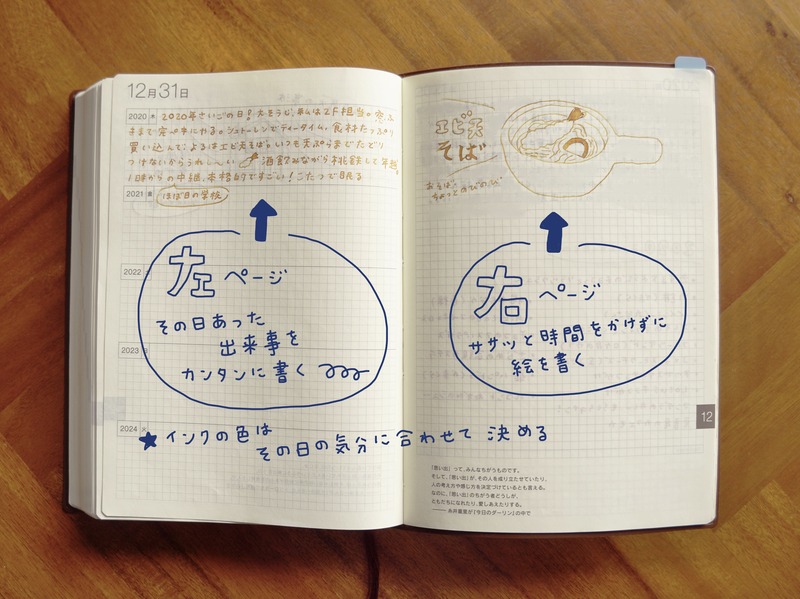 12月31日
2020 木 2020年さいごの日！大そうじ、私は2F担当の窓ふ
きまで完ペキにやる。シュトーレンでティータイム。食材たっぷり
買い込んで、よるはエビ天そば。いつも天ぷらまでたどり
つけないからうれしいい 酒飲みながら桃鉄して年越。
1時からの中継、本格的ですごい！こたつで眠る
2021 金 ほぼ日の学校
2022
2023
2024 火
左ページ
その日あった
出来事を
カンタンに書く
★インクの色は
その日の気分に合わせて 決める
エビ天
そば
おそば、
ちょっとのびのび
右ページ
ササッと時間をかけずに
絵を書く
12
「思い出」って、みんなちがうものです。
そして、「思い出」が、その人を成り立たせていたり、
人の考え方や感じ方を決定づけているとも言える。
なのに、「思い出」のちがう者どうしが、
ともだちになれたり、愛しあえたりする。
――糸井重里が『今日のダーリン』の中で